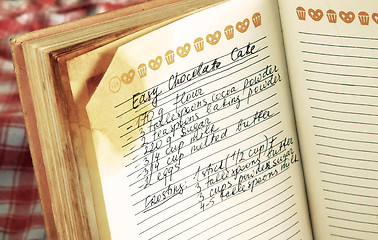 Easy Chocolate Cake
170 g flour
3 tablespoons cocoa powder
3 teaspoons baking powder
170 g sugar
3/4 cup milk
3/4 cup melted butter
2 eggs
Frosting: 1 stick (1/2 cup)
3 tablespoons butter
3 cups powder sugar
4-5 tablespoons milk